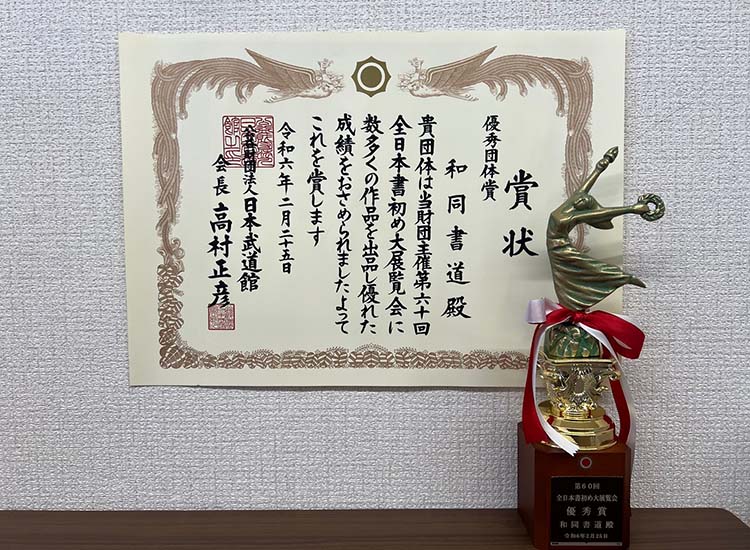 賞状
優秀団体賞
和同書道殿
貴団体は当財団主催第六十回
全日本書初め大展覧会に
数多くの作品を出品し優れた
成績をおさめられましたよって
これを賞します
令和六年二月二十五日
公益財団法人日本武道館
会長 高村正彦
第60回
全日本書初め大展覧会
優秀賞
和同書道殿
令和6年2月25日